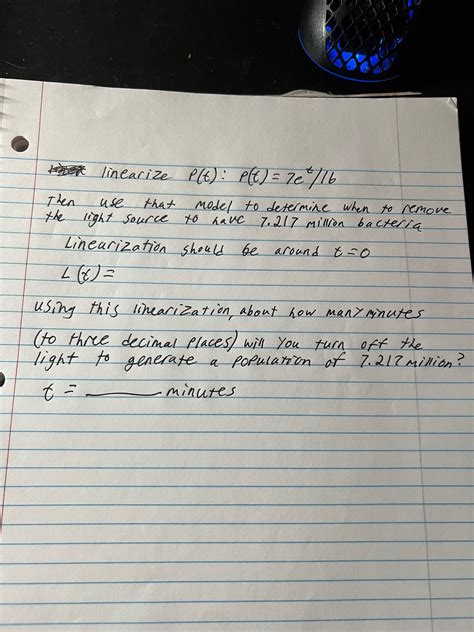 linearize P(t): P(t) = 7e^t/16
Then use that model to determine when to remove
the light source to have 7.217 million bacteria
Linearization should be around t=0
L(t) =
using this linearization, about how many minutes
(to three decimal places) will you turn off the
light to generate a population of 7.217 million?
t = ______ minutes